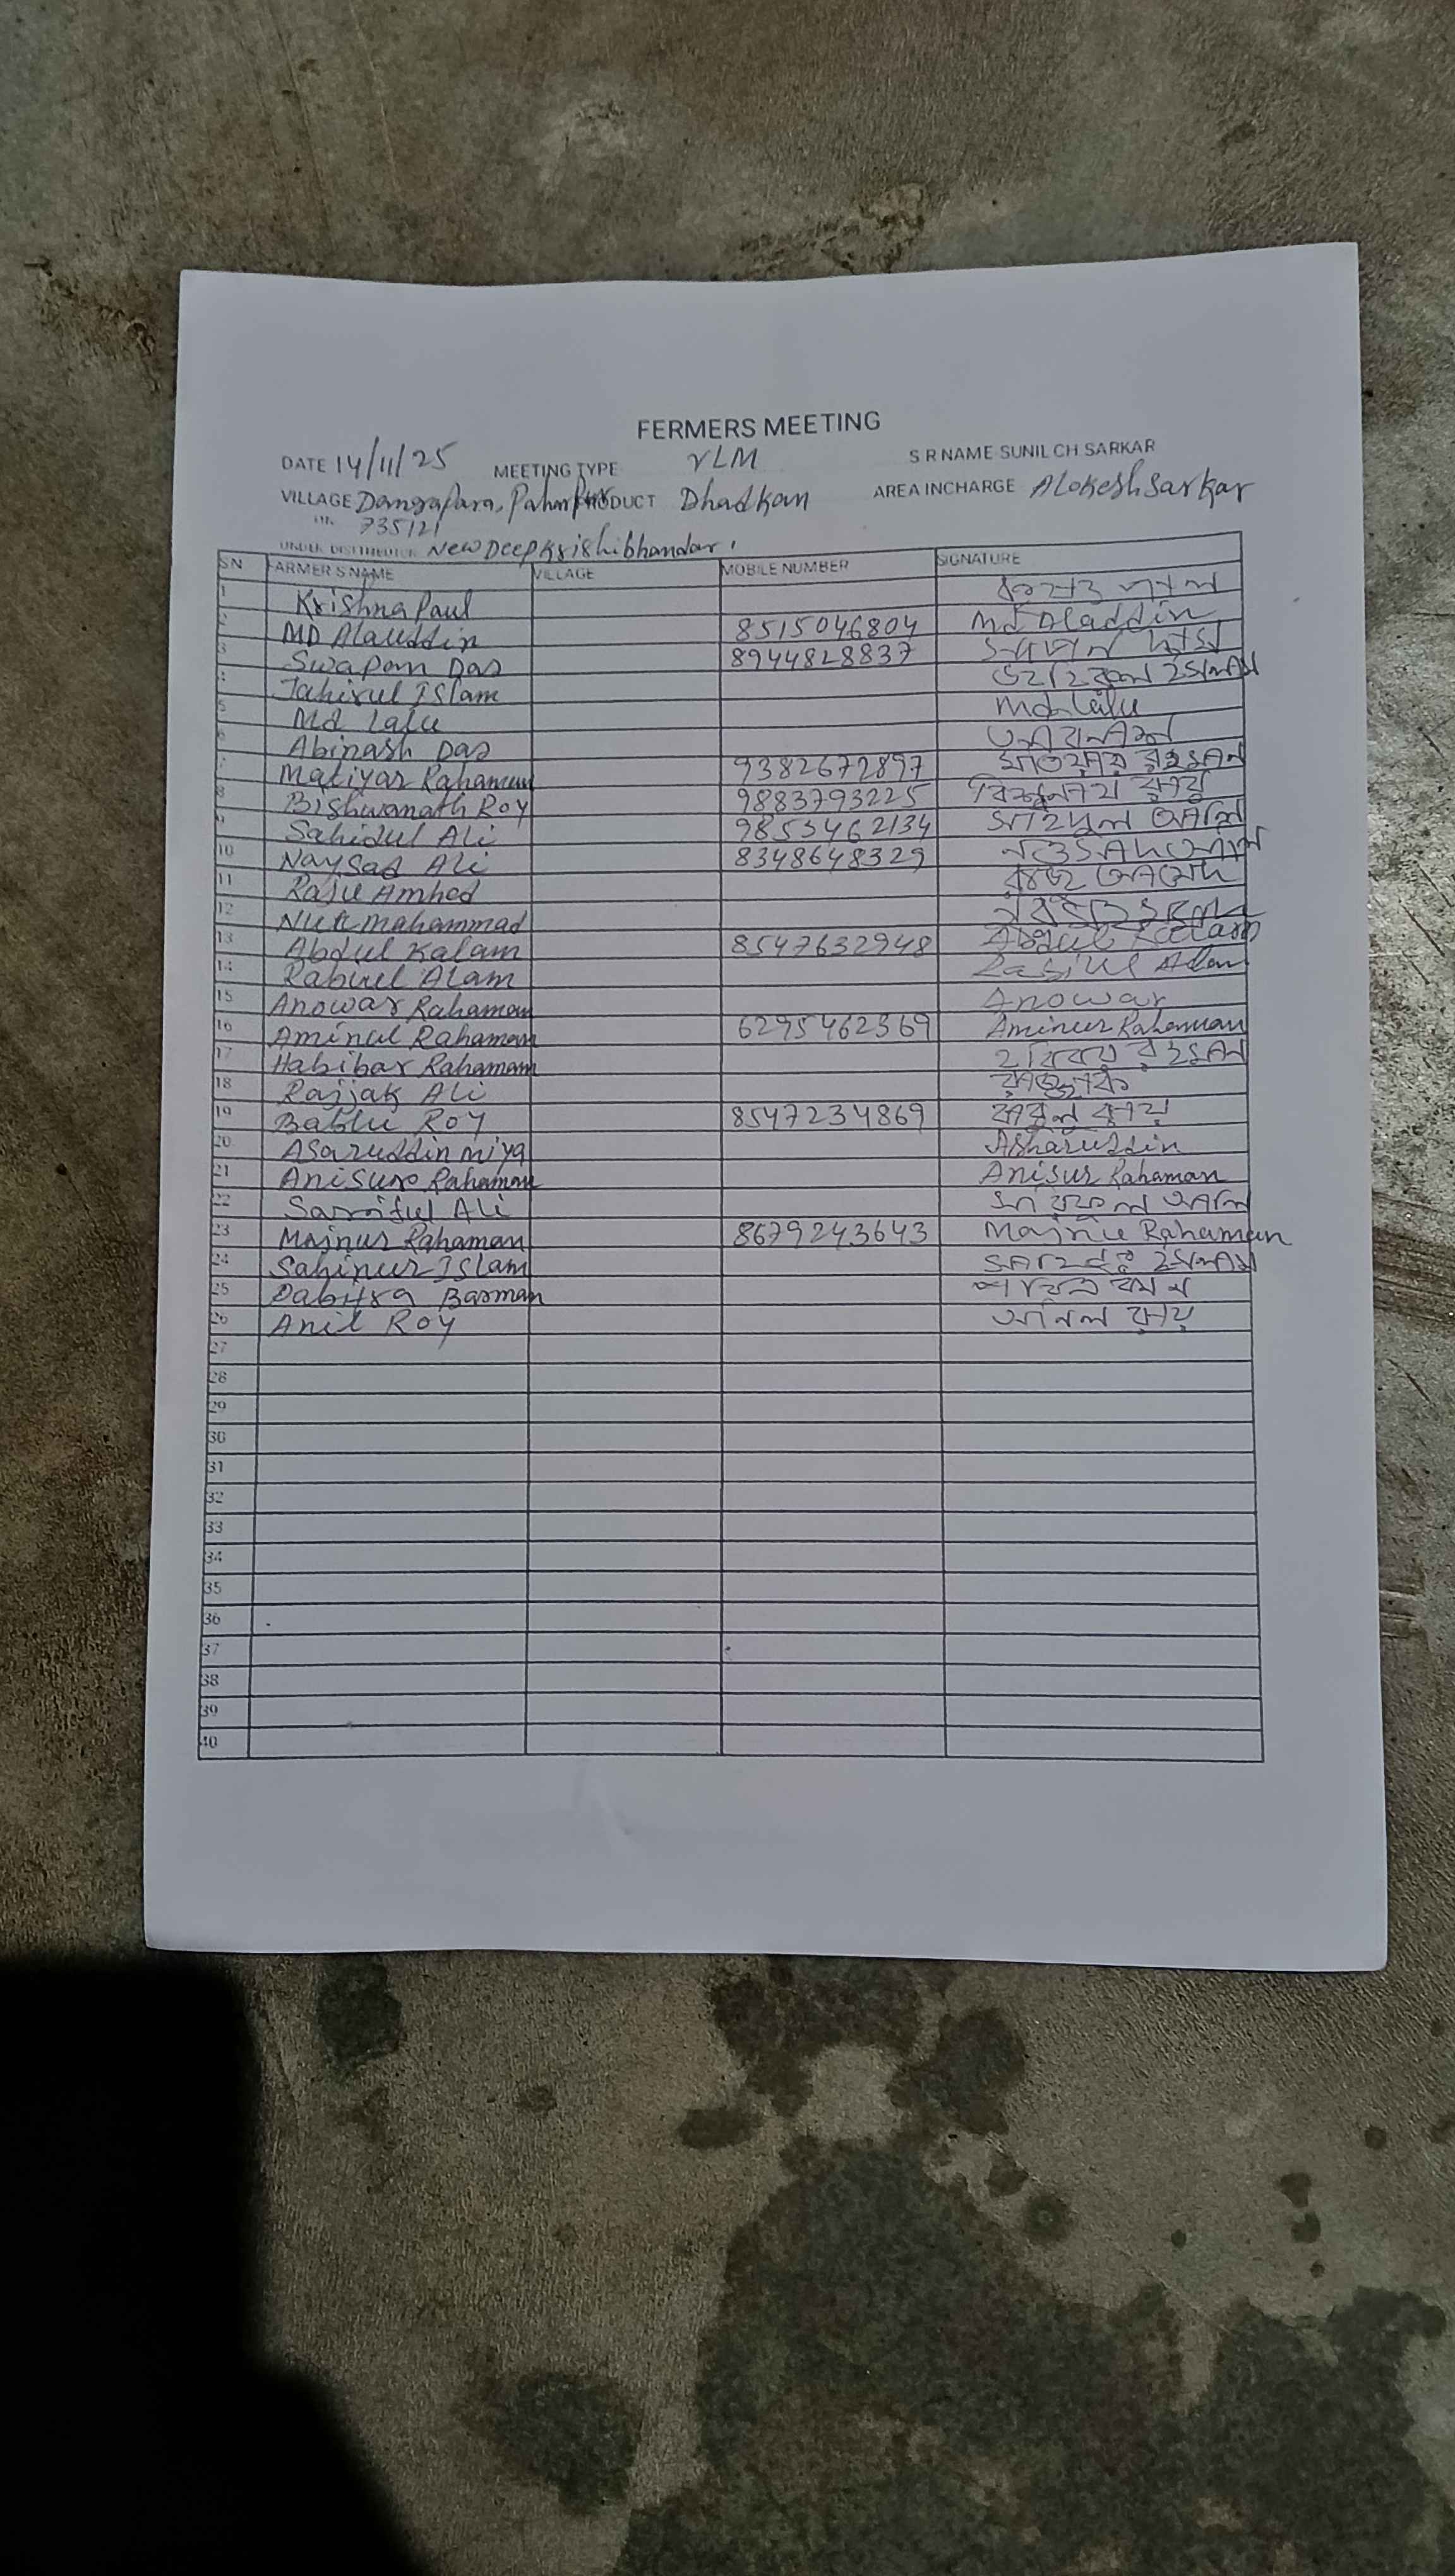 FERMERS MEETING
DATE 14/11/25 MEETING TYPE VLM S R NAME SUNIL CH SARKAR
VILLAGE Dangapara, PRODUCT Dhadkan AREA INCHARGE Alokesh Sarkar
735121
UNDER DISTRIBUTOR New Deep Krishi bhandar
SN FARMERS NAME VILLAGE MOBILE NUMBER SIGNATURE
1 Krishna Paul
2 MD Alauddin 8515046804 Md Aladdin
3 Swapan Das 8944828837 স্বপন দাস
4 Jahirul Islam ইসলাম
5 Md Lalu Md Lalu
6 Abinash Das
7 Matiyar Rahaman 9382672897 রহমান
8 Bishwanath Roy 9883793225 বিশ্বনাথ রায়
9 Sahidul Ali 9853462134 আলি
10 Naysad Ali 8348648329
11 Raju Amhed রাজু আমেদ
12 Nur mahammad
13 Abdul Kalam 8547632948 Abdul Kalam
14 Rabiul Alam Rabiul Alam
15 Anowar Rahaman Anowar
16 Aminul Rahaman 6295462369 Aminur Rahaman
17 Habibar Rahaman হবিবর রহমান
18 Rajjak Ali রাজ্জাক
19 Bablu Roy 8547234869 বাবলু রায়
20 Asaruddin miya Asharuddin
21 Anisur Rahaman Anisur Rahaman
22 Sariful Ali আলি
23 Majnur Rahaman 8679243643 Majnu Rahaman
24 Sahinur Islam ইসলাম
25 Pabitra Barman
26 Anil Roy অনিল রায়
27
28
29
30
31
32
33
34
35
36
37
38
39
40